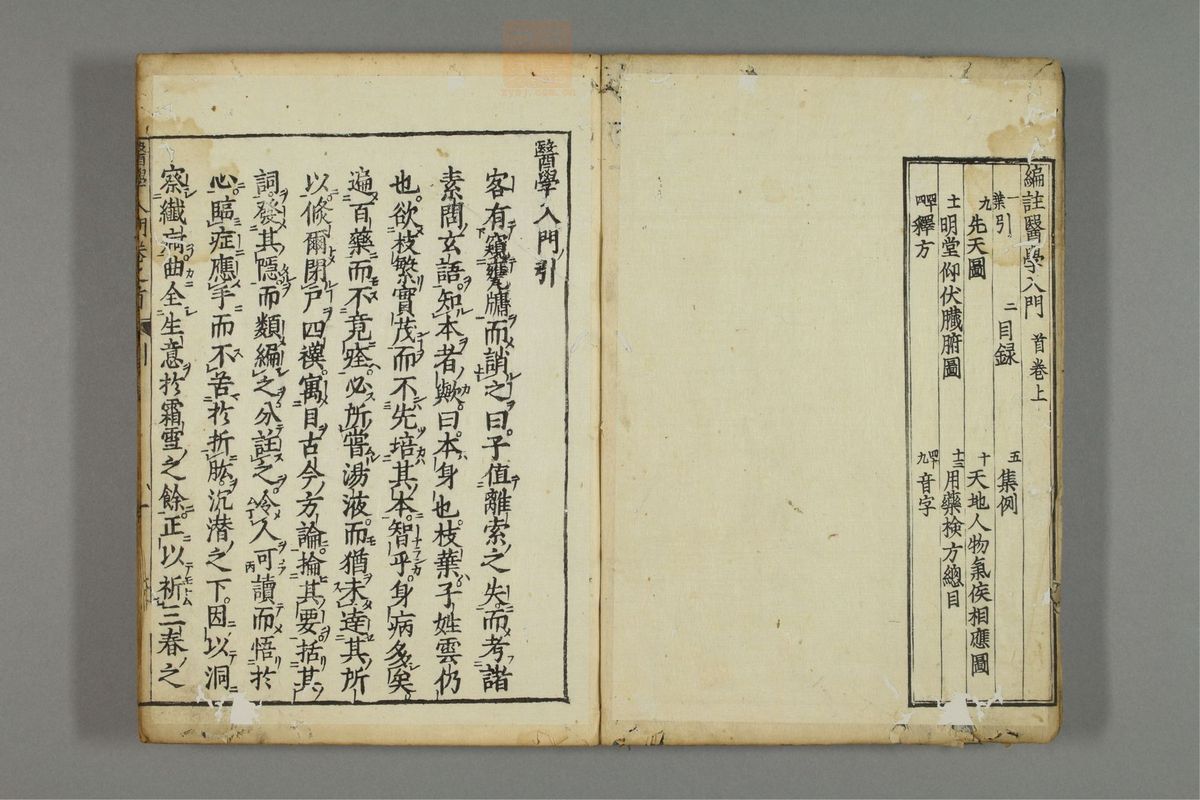 編註醫學入門 首卷上
一葉 引 二 目録 五 集例
九 先天圖 十 天地人物氣侯相應圖
十一 明堂仰伏臟腑圖 十三 用藥檢方總目
四四 釋方 四九 音字
醫學入門引
客有窺甕牖而誚之曰子值離索之失而考諸
素問玄語知本者歟曰本身也枝葉子姓雲仍
也欲枝繁實茂而不先培其本智乎身病多矣
遍百藥而不竟痊必所嘗湯液而猶未達其所
以倏爾閉戸四禩寓目古今方論掄其要括其
詞發其隱而類編之分註之令人可讀而悟於
心臨症應手而不苦於折肱沉潜之下因以洞
察纖疴曲全生意於霜雪之餘正以祈三春之